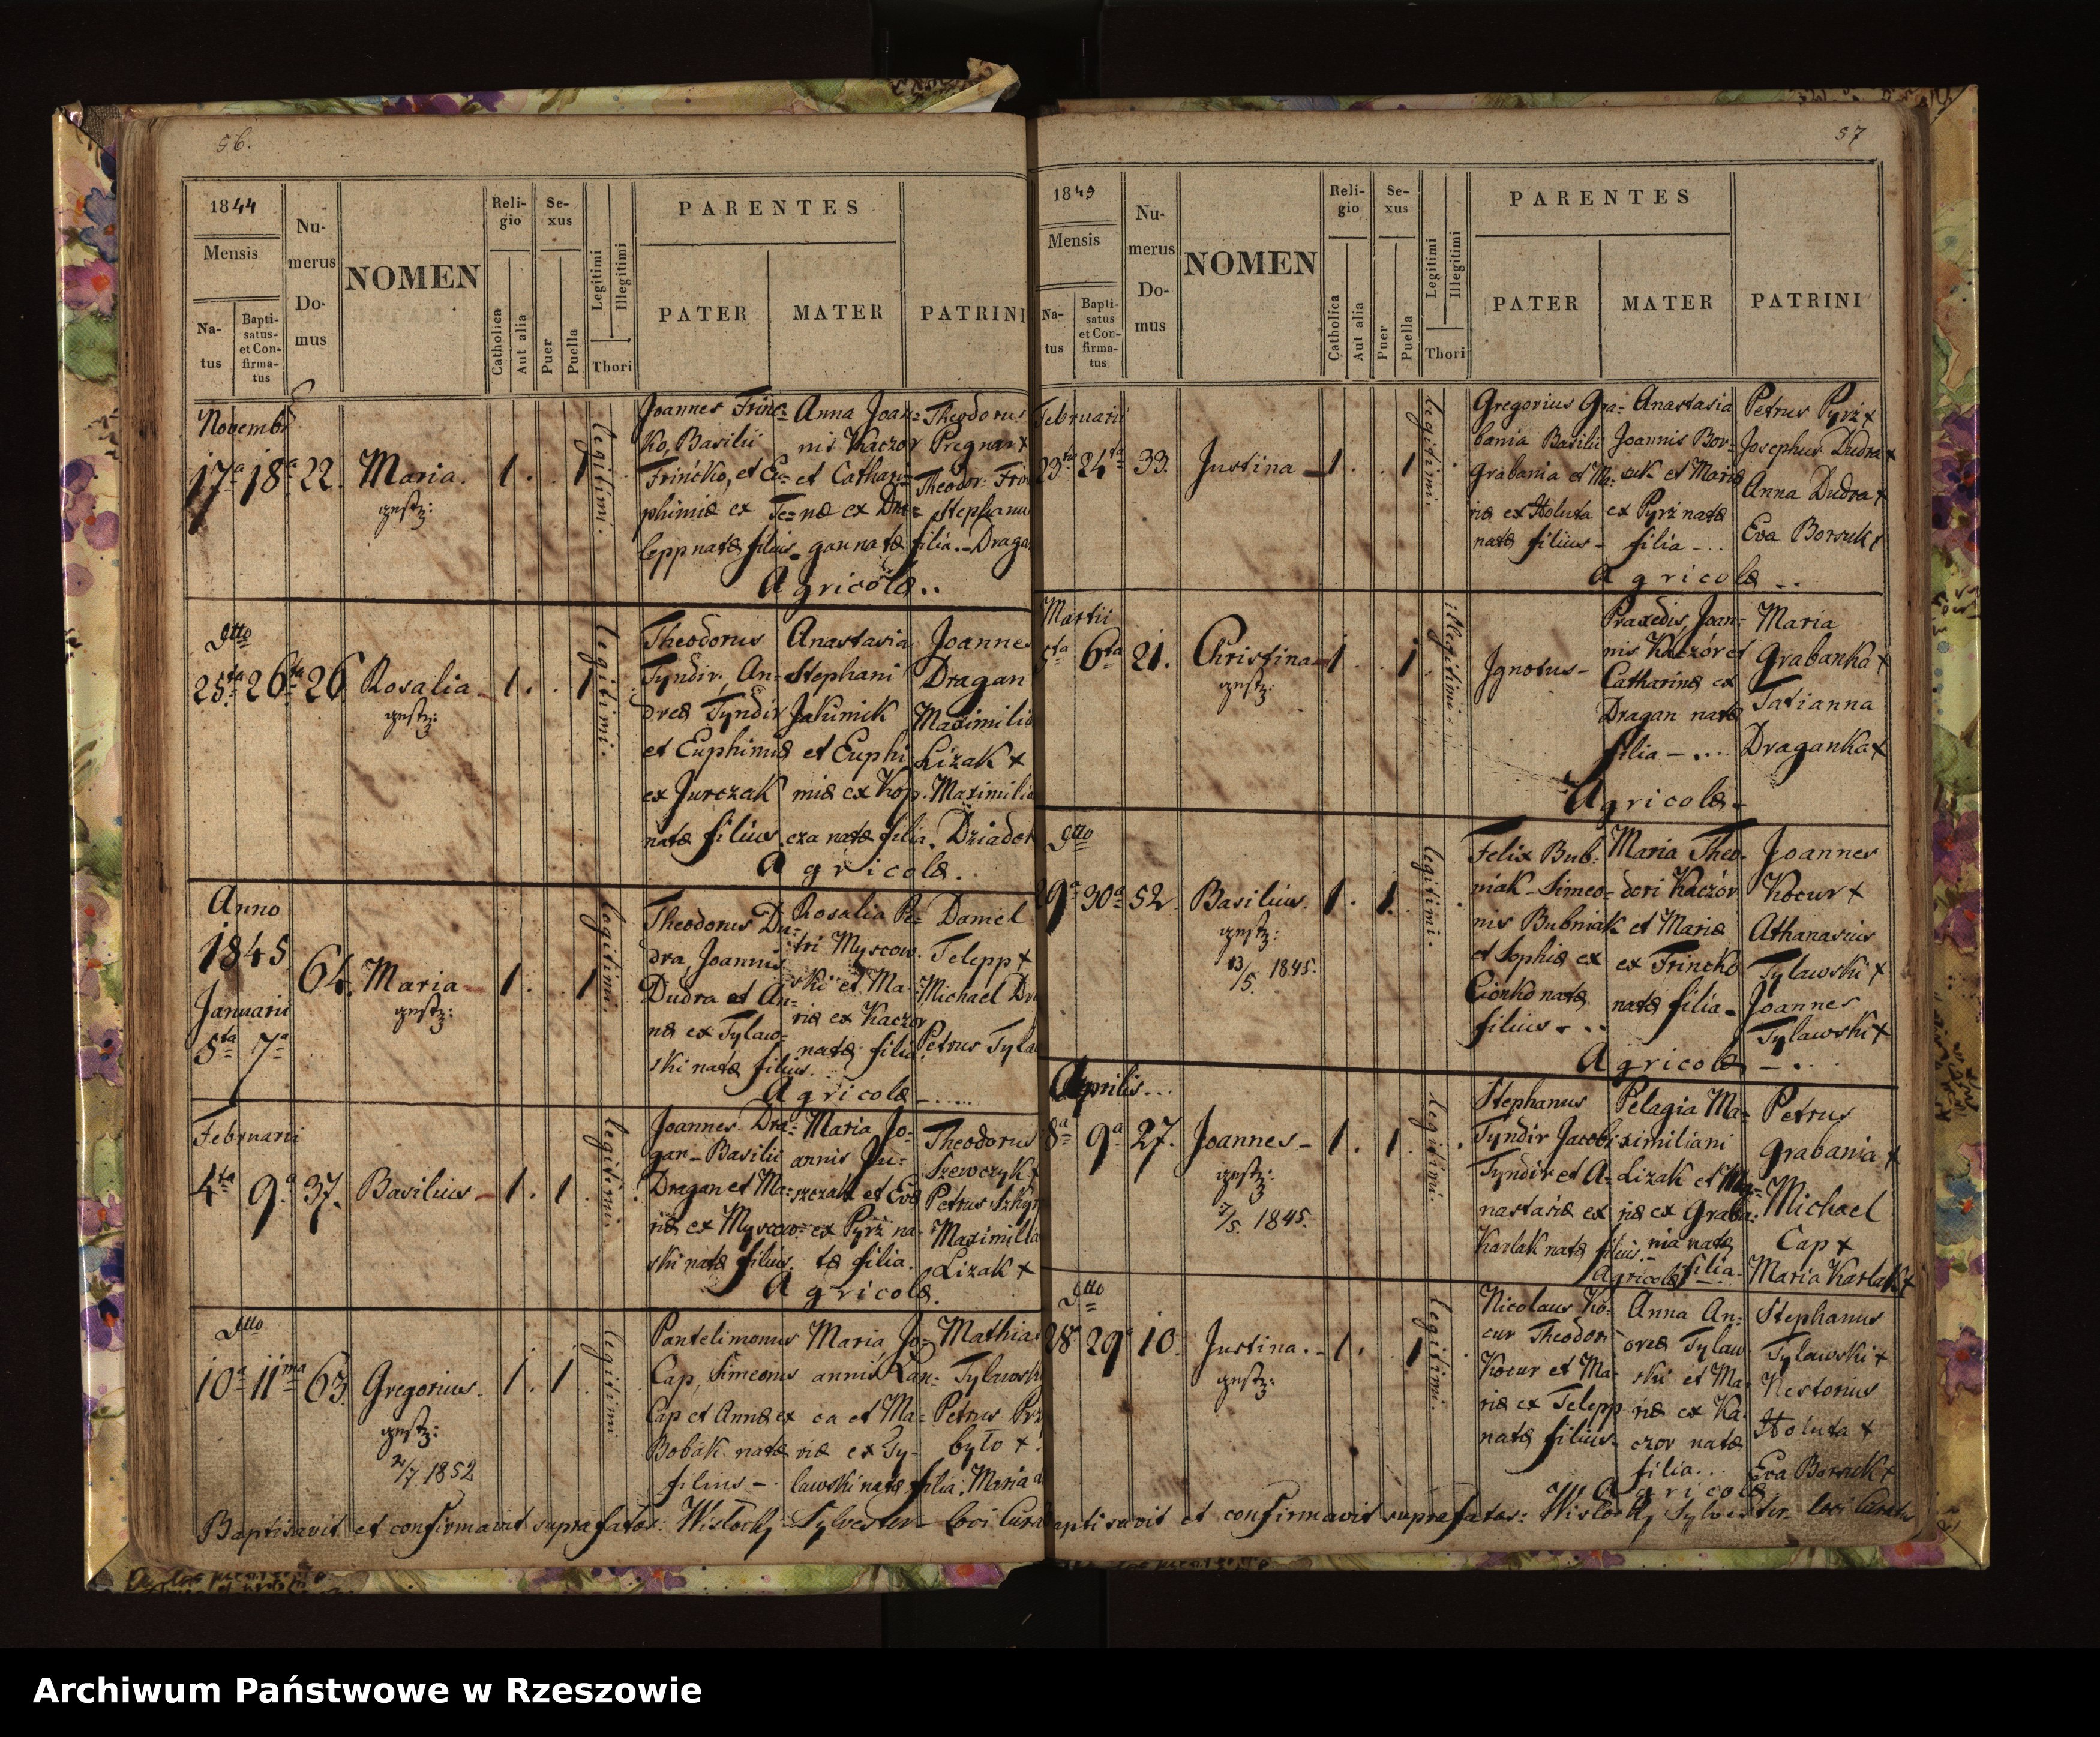 56.
1844
Mensis
Na-
tus
Bapti-
satus-
et Con-
firma-
tus
Nu-
merus
Do-
mus
NOMEN
Reli-
gio
Catholica
Aut alia
Se-
xus
Puer
Puella
Legitimi
Illegitimi
Thori
PARENTES
PATER
MATER
PATRINI
Novembr
17a 18a 22. Maria.
gestz:
1. 1
legitimi.
Joannes Trinc=
ko, Basilii
Trincko, et Eu=
phimiæ ex Te=
lepp natæ filius
Anna Joan=
nis Kaczor
et Cathari=
næ ex Dra=
gan natæ filia.
Theodorus
Pregnar +
Theodor: Trin
Stephanu
Draga
Agricolæ..
Dtto
25ta 26ta 26 Rosalia
gestz:
1. 1
legitimi.
Theodorus
Tyndir, An=
dreæ Tyndir
et Euphimiæ
ex Jurczak
natæ filius.
Anastasia
Stephani
Jakimik
et Euphi
miæ ex Kop.
cza natæ filia.
Joannes
Dragan
Maximilia
Lizak +
Maximilia
Dziador
Agricolæ.
Anno
1845
Januarii
5ta 7a
64. Maria
gestz:
1. 1
legitimi.
Theodorus Du=
dra, Joannis
Dudra et An=
næ ex Tylaw=
ski natæ filius.
Rosalia Pe=
tri Myscow.
ski et Ma=
riæ ex Kaczor
natæ filia
Daniel
Telepp +
Michael Dr
Petrus Tyla
Agricolæ
Februarii
4ta 9a 37. Basilius
1. 1
legitimi.
Joannes Dra=
gan Basilii
Dragan et Ma=
riæ ex Myscow=
ski natæ filius.
Maria Jo=
annis Ju=
szczak et Evæ
ex Pyrz na=
tæ filia.
Theodorus
Szewczyk +
Petrus
Maximilia
Lizak +
Agricolæ.
Dtto
10a 11ma 63. Gregorius.
gestz:
2/7. 1852
1. 1
legitimi
Pantelimonus
Cap, Simeonis
Cap et Annæ ex
Bobak natæ
filius
Maria Jo=
annis Lan=
ca et Ma=
riæ ex Ty=
lawski natæ filia.
Mathias
Tylawsk
Petrus Prz
byto +.
Maria
Baptisavit et confirmavit suprafatos: Wislocky Sylvester loci Cura
57
1845
Mensis
Na-
tus
Bapti-
satus
et Con-
firma-
tus
Nu-
merus
Do-
mus
NOMEN
Reli-
gio
Catholica
Aut alia
Se-
xus
Puer
Puella
Legitimi
Illegitimi
Thori
PARENTES
PATER
MATER
PATRINI
Februarii
23tia 24ta 33. Justina
1. 1
legitimi.
Gregorius Gra=
bania Basilii
Grabania et Ma=
riæ ex Holuta
natæ filius
Anastasia
Joannis Bor=
suk et Mariæ
ex Pyrz natæ
filia
Petrus Pyrz +
Josephus Dudra +
Anna Dudra +
Eva Borsuk +
Agricolæ
Martii
5ta 6ta 21. Christina
gestz:
1. 1
illegitimi.
Ignotus
Praxedis, Joan=
nis Kaczór et
Catharinæ ex
Dragan natæ
filia
Maria
Grabanka +
Tatianna
Draganka +
Agricolæ
Dtto
29a 30a 52. Basilius.
gestz:
13/5. 1845.
1. 1.
legitimi.
Felix Bub.
niak Simeo=
nis Bubniak
et Sophiæ ex
Cionko natæ
filius
Maria Theo.
dori Kaczór
et Mariæ
ex Trincko
natæ filia
Joannes
Kocur +
Athanasius
Tylawski +
Joannes
Tylawski +
Agricolæ
Aprilis
8a 9a 27. Joannes
gestz:
7/5. 1845.
1. 1
legitimi.
Stephanus
Tyndir Jacobi
Tyndir et A=
nastasiæ ex
Karlak natæ filius.
Pelagia Ma=
ximiliani
Lizak et Ma=
riæ ex Graba=
nia natæ
filia.
Petrus
Grabania +
Michael
Cap +
Maria Karlak +
Agricolæ
Dtto
28 29 10. Justina.
gestz:
1. 1
legitimi.
Nicolaus Ko=
cur Theodori
Kocur et Ma=
riæ ex Telepp
natæ filius
Anna An=
dreæ Tylaw.
ski et Ma=
riæ ex Ka=
czor natæ
filia...
Stephanus
Tylawski +
Nestorius
Holuta +
Eva Borsuk +
Agricolæ
Baptisavit et confirmavit suprafatos: Wislocky Sylvester loci Curatus
Archiwum Państwowe w Rzeszowie